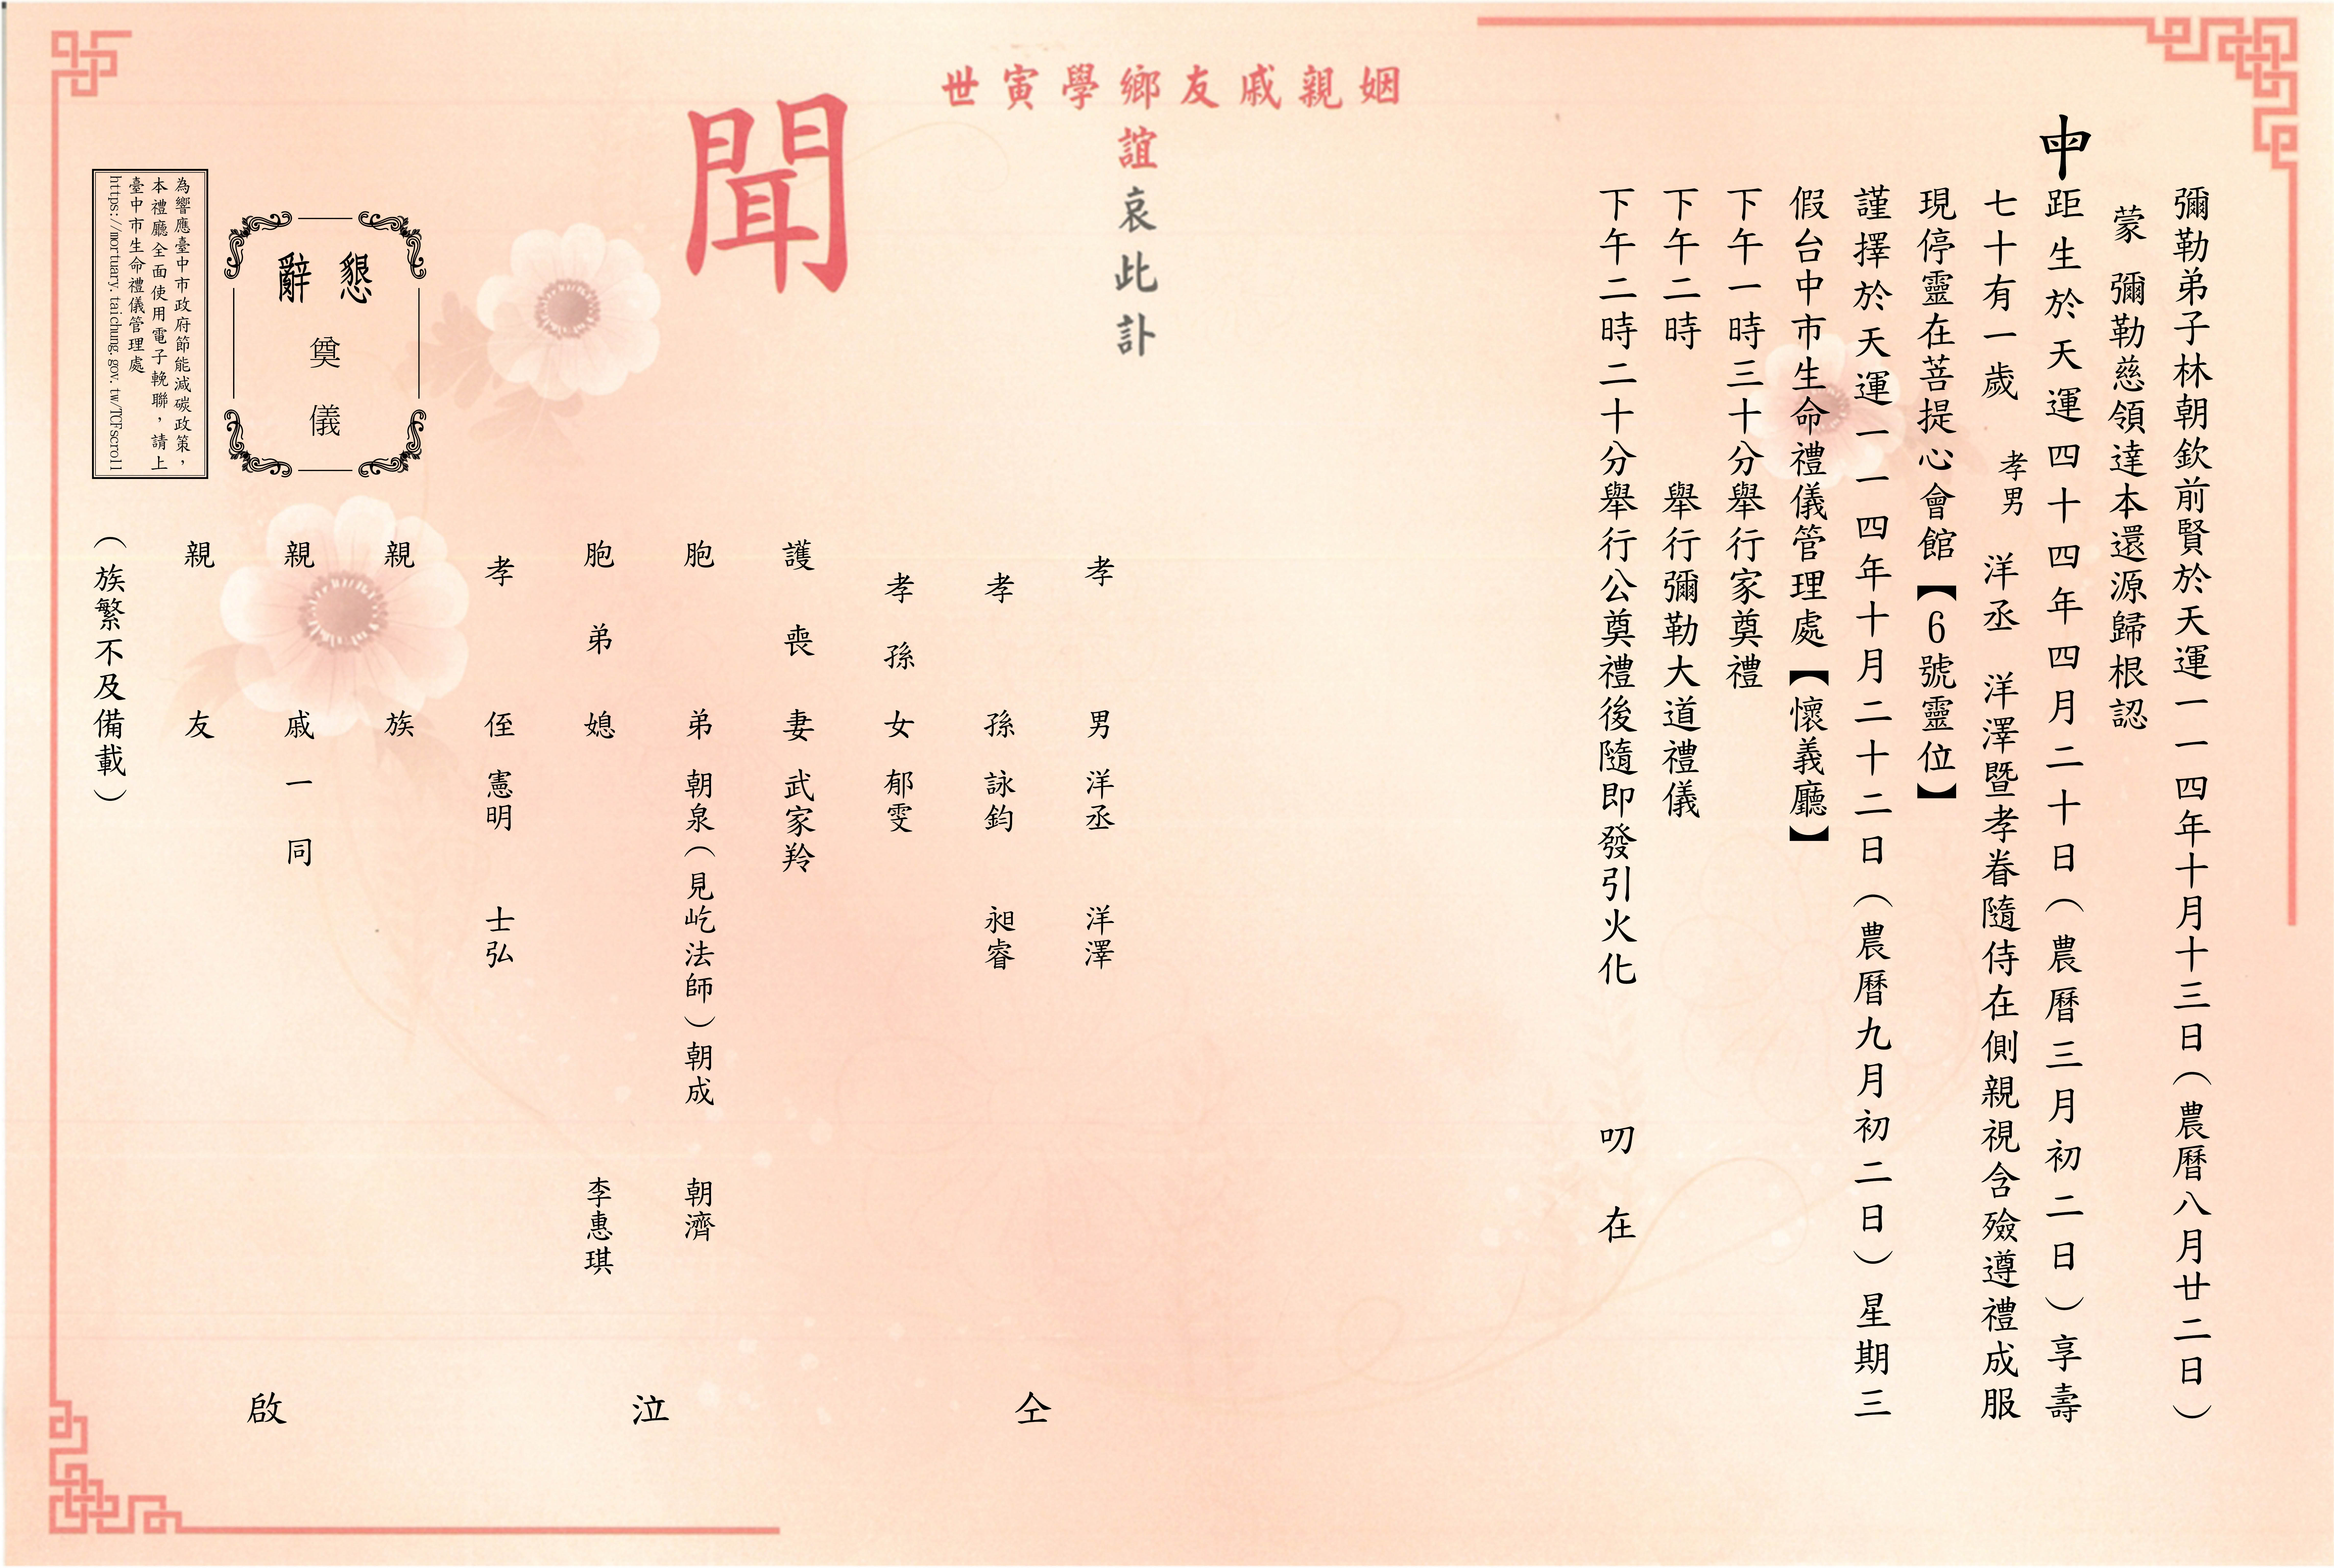 彌勒弟子林朝欽前賢於天運一一四年十月十三日（農曆八月廿二日）
蒙 彌勒慈領達本還源歸根認
距生於天運四十四年四月二十日（農曆三月初二日）享壽
七十有一歲 孝男 洋丞 洋澤暨孝眷隨侍在側親視含殮遵禮成服
現停靈在菩提心會館【6號靈位】
謹擇於天運一一四年十月二十二日（農曆九月初二日）星期三
假台中市生命禮儀管理處【懷義廳】
下午一時三十分舉行家奠禮
下午二時 舉行彌勒大道禮儀
下午二時二十分舉行公奠禮後隨即發引火化 叨 在
姻親戚友鄉學寅世
誼哀此訃
聞
孝男 洋丞 洋澤
孝孫 詠鈞 昶睿
孝孫女 郁雯
護喪妻 武家羚
胞弟 朝泉（見屹法師）朝成 朝濟
胞弟媳 李惠琪
孝侄 憲明 士弘
親族
親戚一同
親友
（族繁不及備載）
仝 泣 啟
懇辭
奠儀
為響應臺中市政府節能減碳政策，
本禮廳全面使用電子輓聯，請上
臺中市生命禮儀管理處
https://mortuary.taichung.gov.tw/TCFscroll